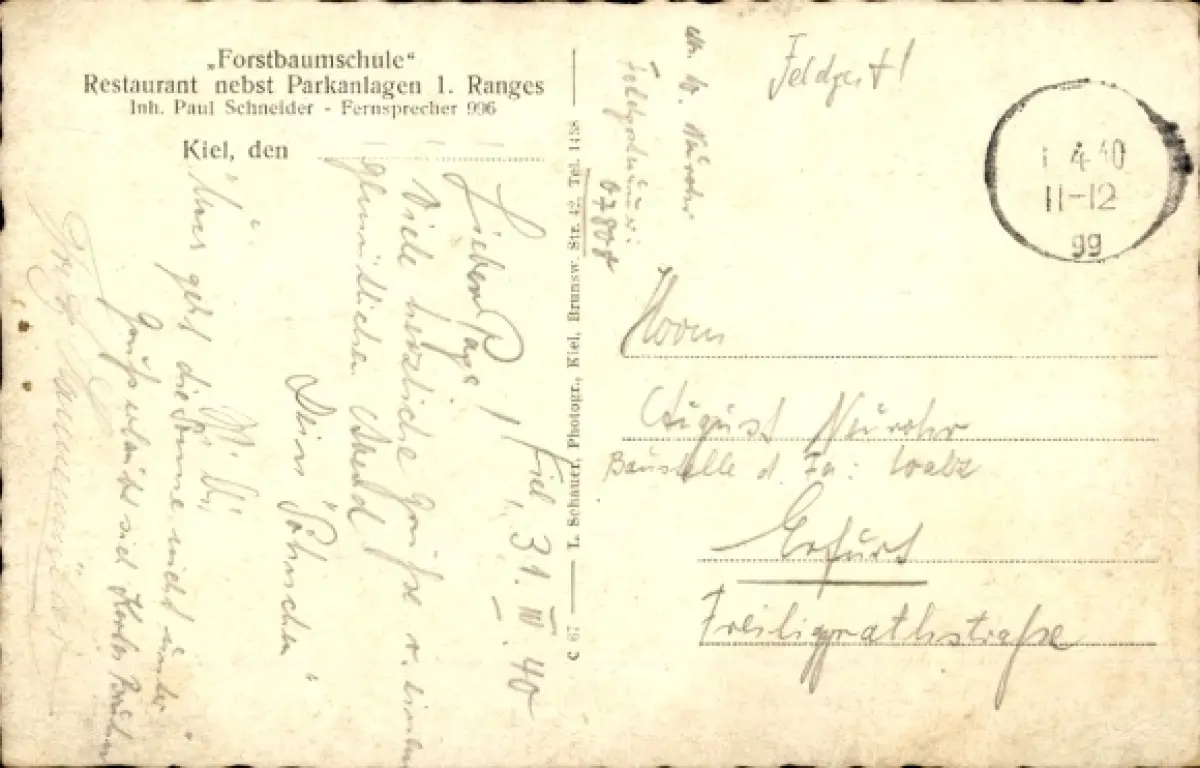 „Forstbaumschule“
Restaurant nebst Parkanlagen 1. Ranges
Inh. Paul Schneider - Fernsprecher 996
Kiel, den
Kiel, 31. III. 40
Lieber Papa!
Viele herzliche Grüße v. einem
gemütlichen Abend
Dein Söhnchen
"Uns geht die Sonne nicht unter"
Grüße
sich
L. Schauer, Photogr., Kiel, Brunsw. Str. 42. Tel. 1488
C 67
Nürrohr
Feldpostnum.:
07808
Feldpost!
1 4 40
11-12
gg
Herrn
August Nürrohr
Baustelle d. Fa:
Erfurt
Freiligrathstraße